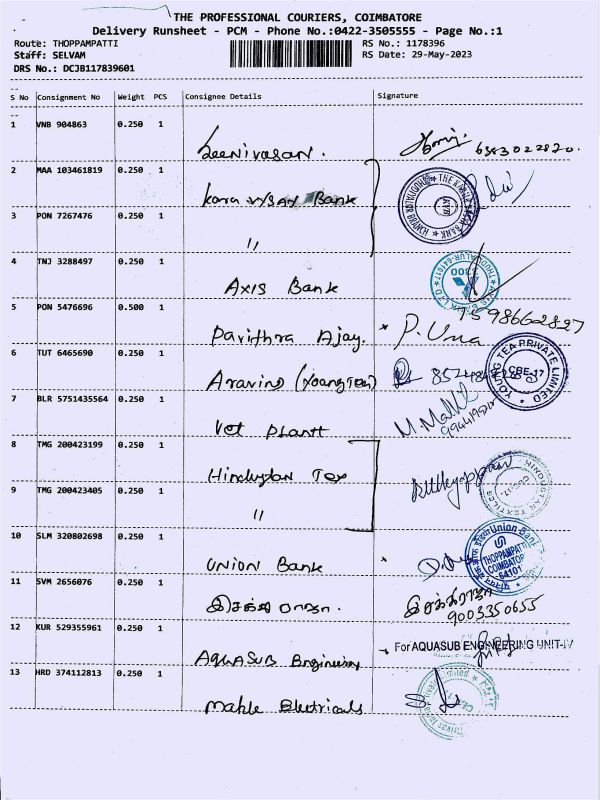 THE PROFESSIONAL COURIERS, COIMBATORE
Delivery Runsheet - PCM - Phone No.:0422-3505555 - Page No.:1
Route: THOPPAMPATTI RS No.: 1178396
Staff: SELVAM RS Date: 29-May-2023
DRS No.: DCJB117839601
S No Consignment No Weight PCS Consignee Details Signature
1 VNB 904863 0.250 1 Seenivasan.
2 MAA 103461819 0.250 1 Bank
3 PON 7267476 0.250 1 "
4 TNJ 3288497 0.250 1 Axis Bank
5 PON 5476696 0.500 1 Pavithra Ajay. * P. Uma
6 TUT 6465690 0.250 1 YOUNG TEA PRIVATE LIMITED CBE-17
7 BLR 5751435564 0.250 1 Vet Plant
8 TMG 200423199 0.250 1 Hindustan Tex
9 TMG 200423405 0.250 1 "
10 SLM 320802698 0.250 1 Union Bank Union Bank THOPPAMPATTI COIMBATORE
11 SVM 2656076 0.250 1 9003350655
12 KUR 529355961 0.250 1 Aquasub Engineering For AQUASUB ENGINEERING UNIT-IV
13 HRD 374112813 0.250 1 Mahle Electricals